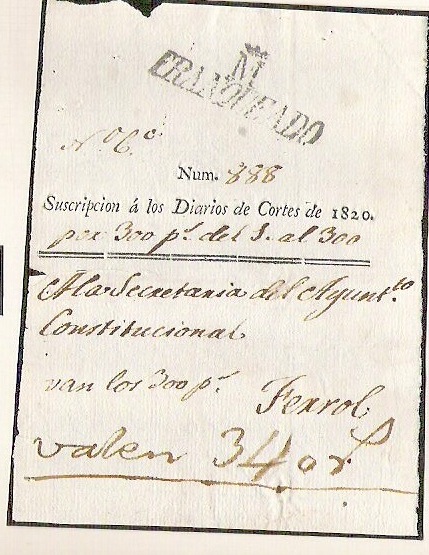 M
FRANQUEADO
Nº 6.º
Num. 888
Suscripcion á los Diarios de Cortes de 1820.
por 300 p.s del 1. al 300
A la Secretaria del Ayunt.to
Constitucional
van los 300 p.s
Ferrol
valen 34 or